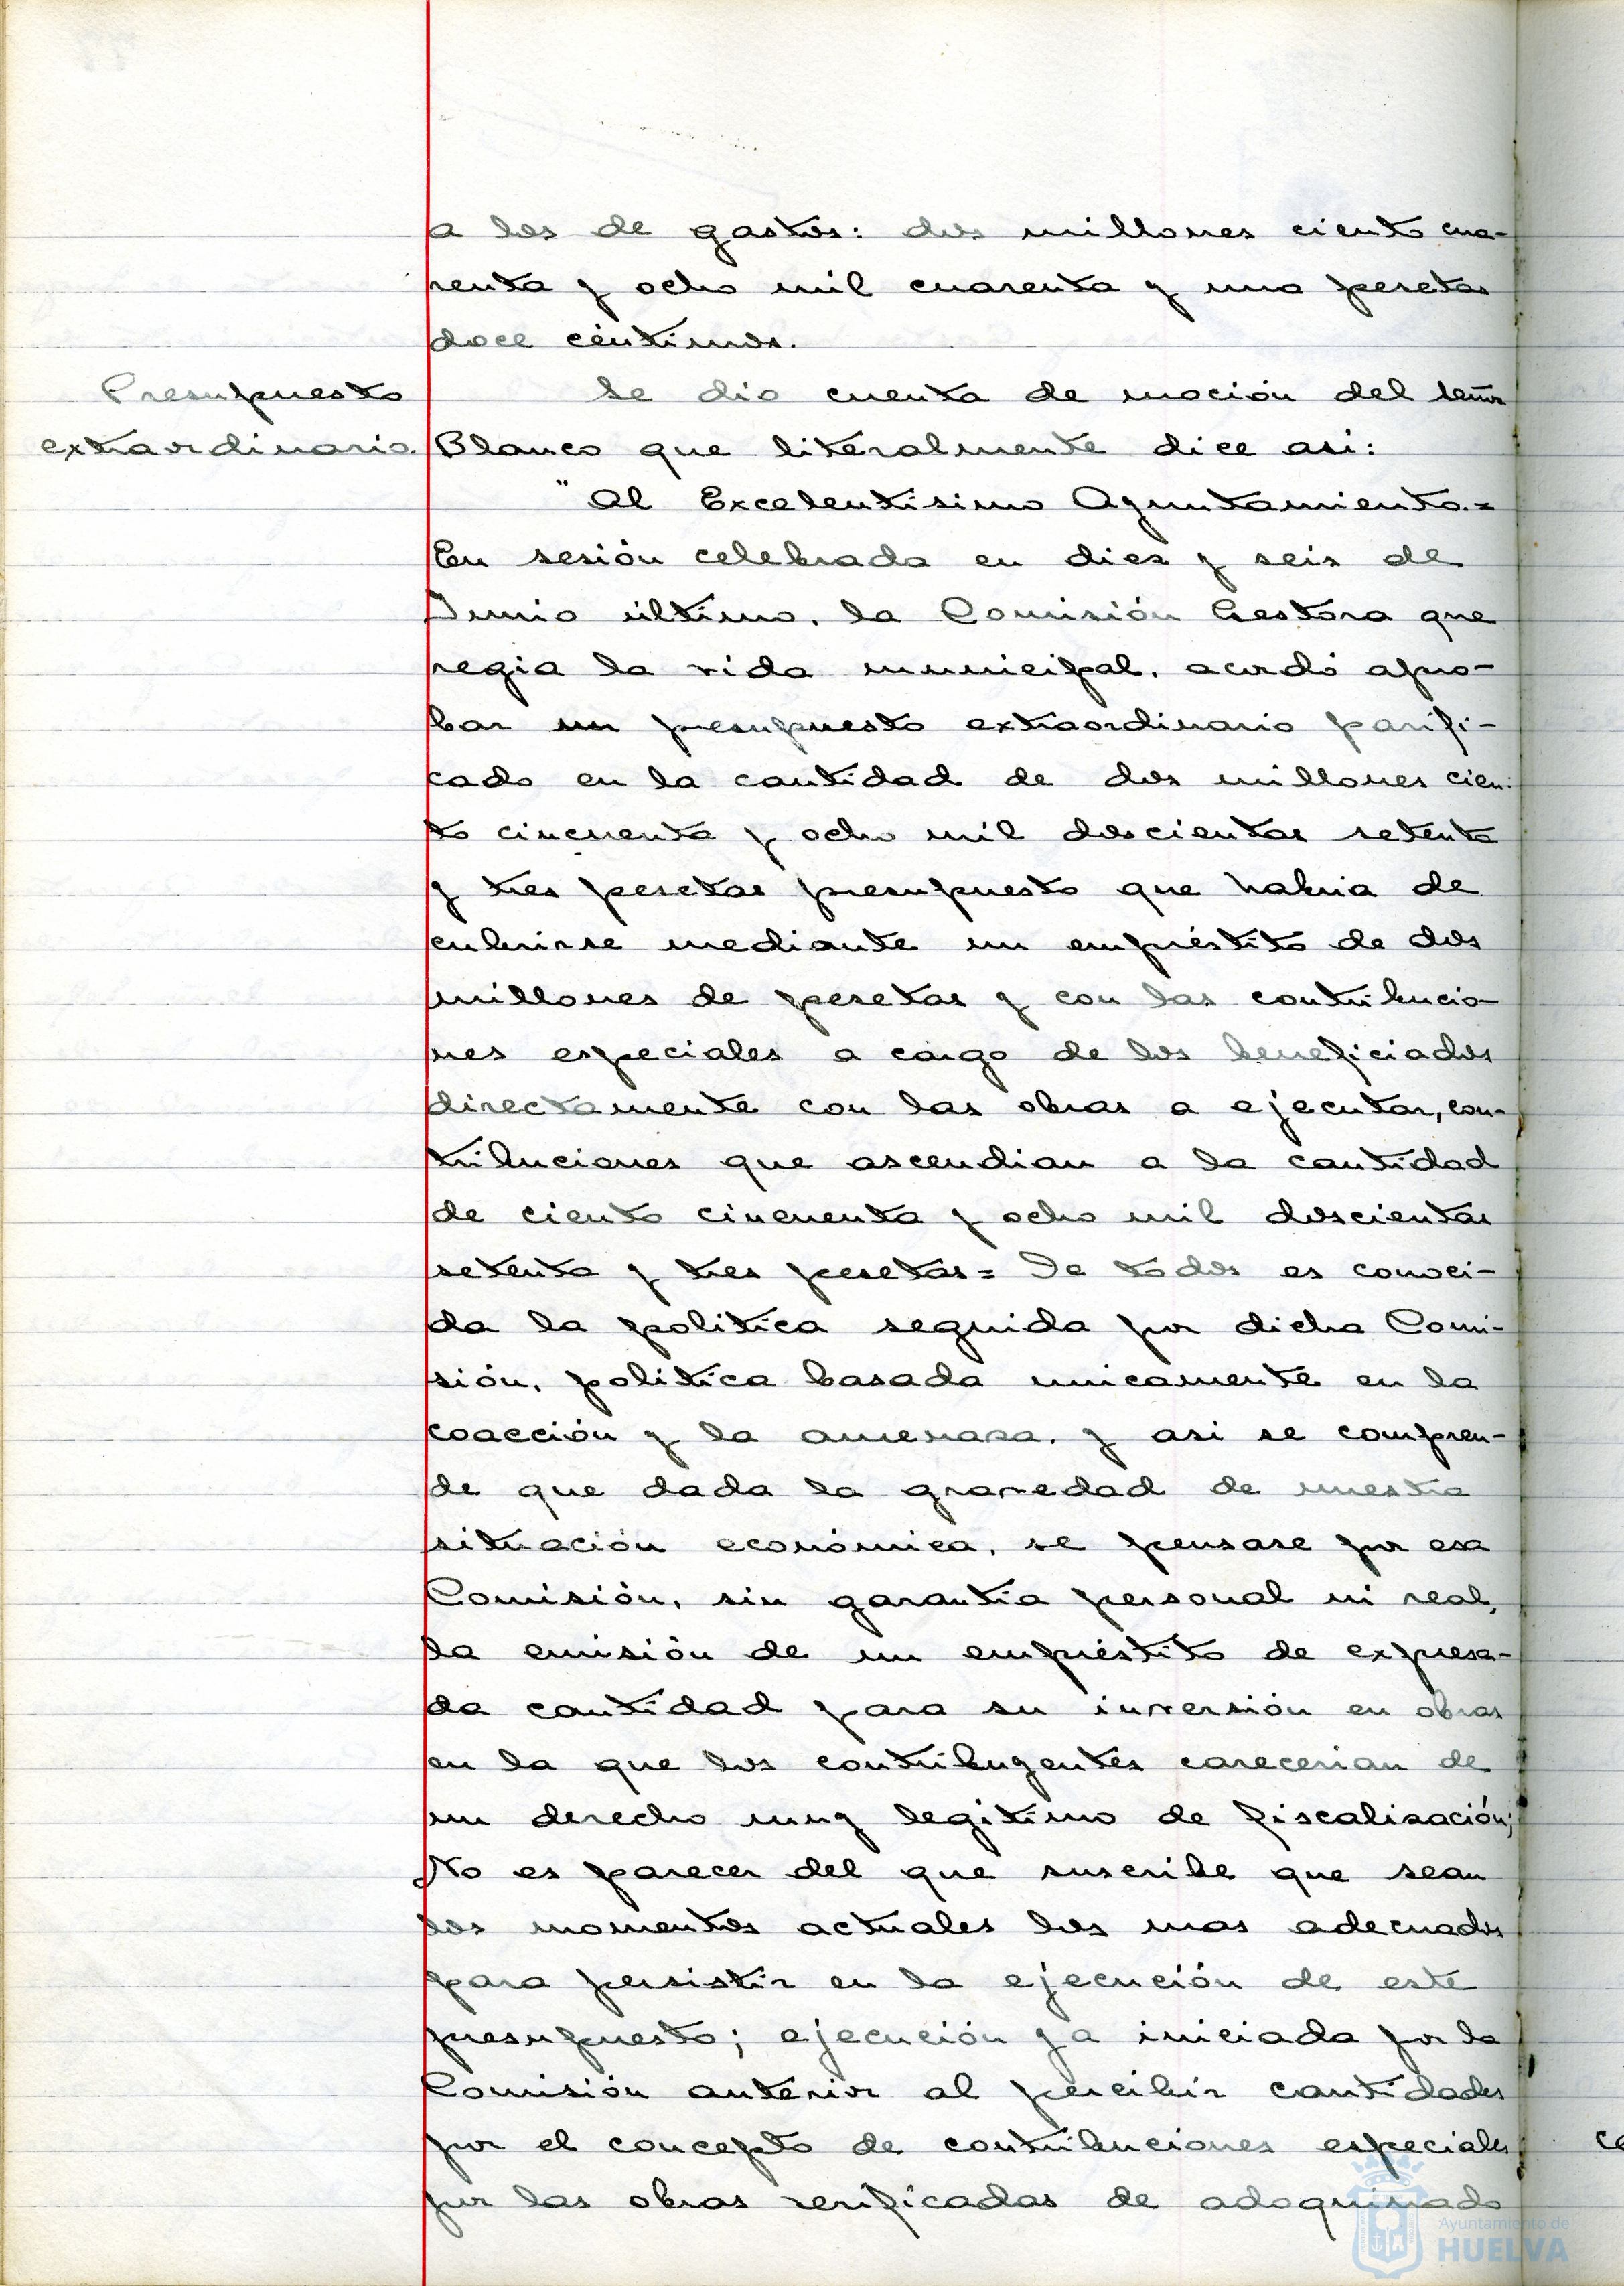 a los de gastos: dos millones ciento cua-
renta y ocho mil cuarenta y una pesetas
doce céntimos.
Presupuesto
extraordinario.
Se dio cuenta de moción del señor
Blanco que literalmente dice asi:
"Al Excelentísimo Ayuntamiento.=
En sesión celebrada en diez y seis de
Junio último, la Comisión Gestora que
regia la vida municipal, acordó apro-
bar un presupuesto extraordinario parifi-
cado en la cantidad de dos millones cien-
to cincuenta y ocho mil doscientas setenta
y tres pesetas presupuesto que habia de
cubrirse mediante un empréstito de dos
millones de pesetas y con las contribucio-
nes especiales a cargo de los beneficiados
directamente con las obras a ejecutar, con-
tribuciones que ascendian a la cantidad
de ciento cincuenta y ocho mil doscientas
setenta y tres pesetas= De todos es conoci-
da la politica seguida por dicha Comi-
sión, politica basada unicamente en la
coacción y la amenaza, y asi se compren-
de que dada la gravedad de nuestra
situación económica, se pensase por esa
Comisión, sin garantia personal ni real,
la emisión de un empréstito de expresa-
da cantidad para su inversión en obras
en la que los contribuyentes carecerian de
un derecho muy legitimo de fiscalización;
No es parecer del que suscribe que sean
los momentos actuales los mas adecuados
para persistir en la ejecución de este
presupuesto; ejecución ya iniciada por la
Comisión anterior al percibir cantidades
por el concepto de contribuciones especiales
por las obras verificadas de adoquinado
Ayuntamiento de
HUELVA